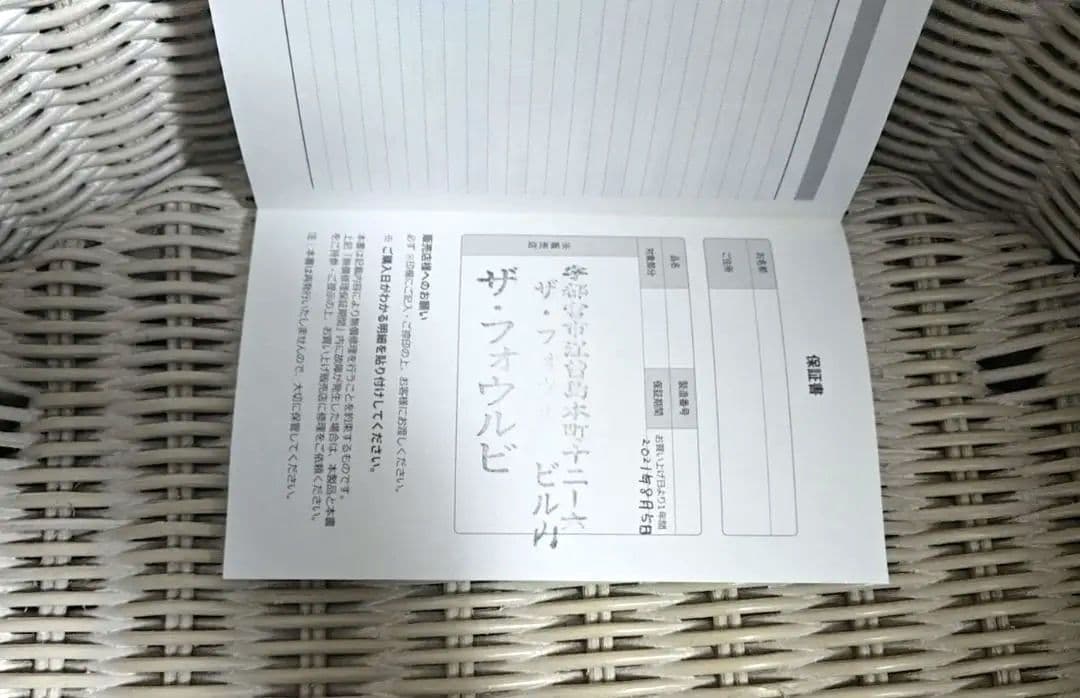 保証書
お名前
ご住所
品名
製造番号
対象部分
保証期間
お買い上げ日より1年間
2021年8月5日
※販売店
十二ー六
ザ・フォウルビ
ビル内
ザ・フォウルビ
販売店様へのお願い
必ず※印欄にご記入・ご捺印の上、お客様にお渡しください。
※ご購入日がわかる明細を貼り付けしてください。
本書は記載内容により無償修理を行うことを約束するものです。
上記「無償修理保証期間」内に故障が発生した場合は、本製品と本書
をご持参・ご提示の上、お買い上げ販売店に修理をご依頼ください。
注：本書は再発行いたしませんので、大切に保管してください。